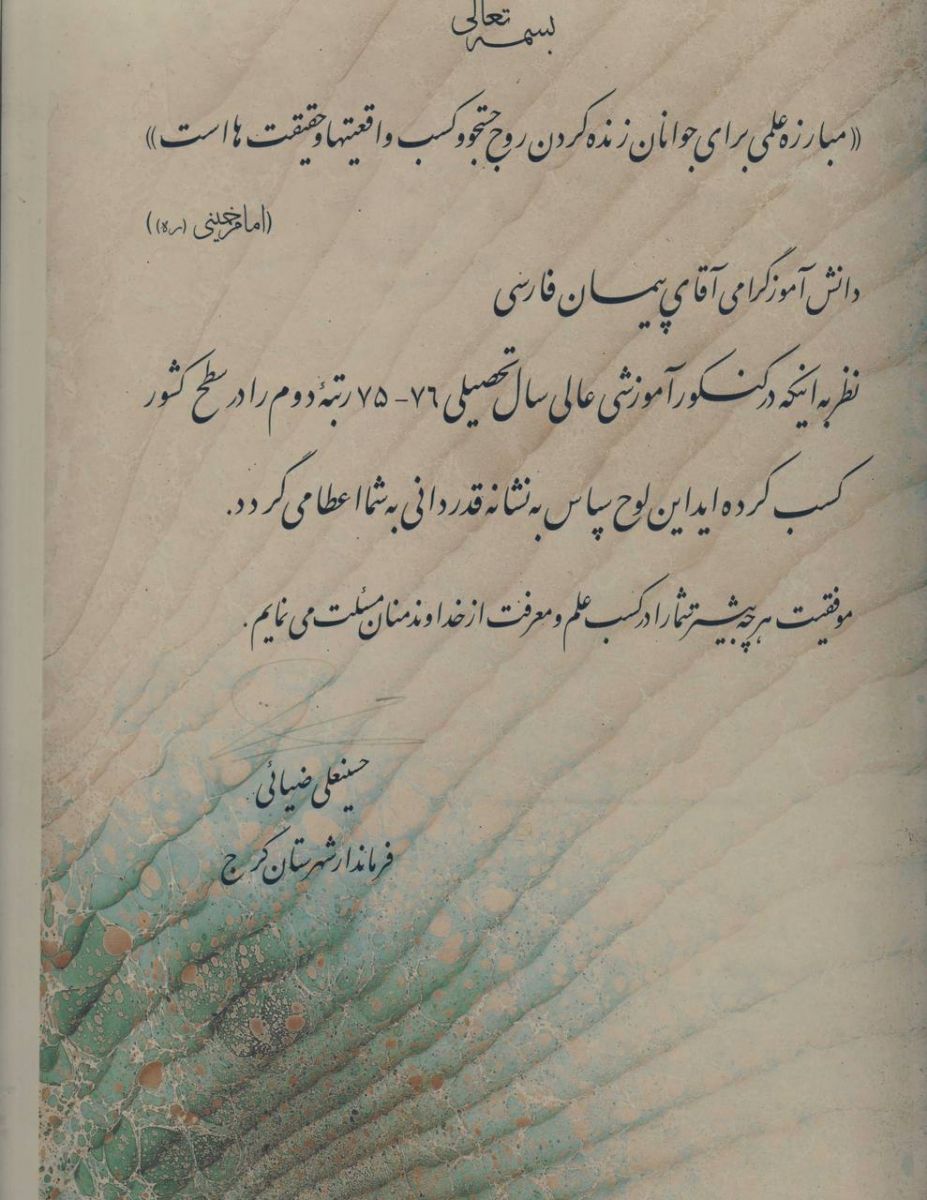 بسمه تعالی
«مبارزه علمی برای جوانان زنده کردن روح جستجو و کسب واقعیتها و حقیقت ها است»
(امام خمینی (ره))
دانش آموز گرامی آقای پیمان فارسی
نظر به اینکه در کنکور آموزشی عالی سال تحصیلی ۷۶-۷۵ رتبهٔ دوم را در سطح کشور
کسب کرده اید این لوح سپاس به نشانه قدردانی به شما اعطا می گردد.
موفقیت هر چه بیشتر شما را در کسب علم و معرفت از خداوند منان مسئلت می نمایم.
حسینعلی ضیائی
فرماندار شهرستان کرج